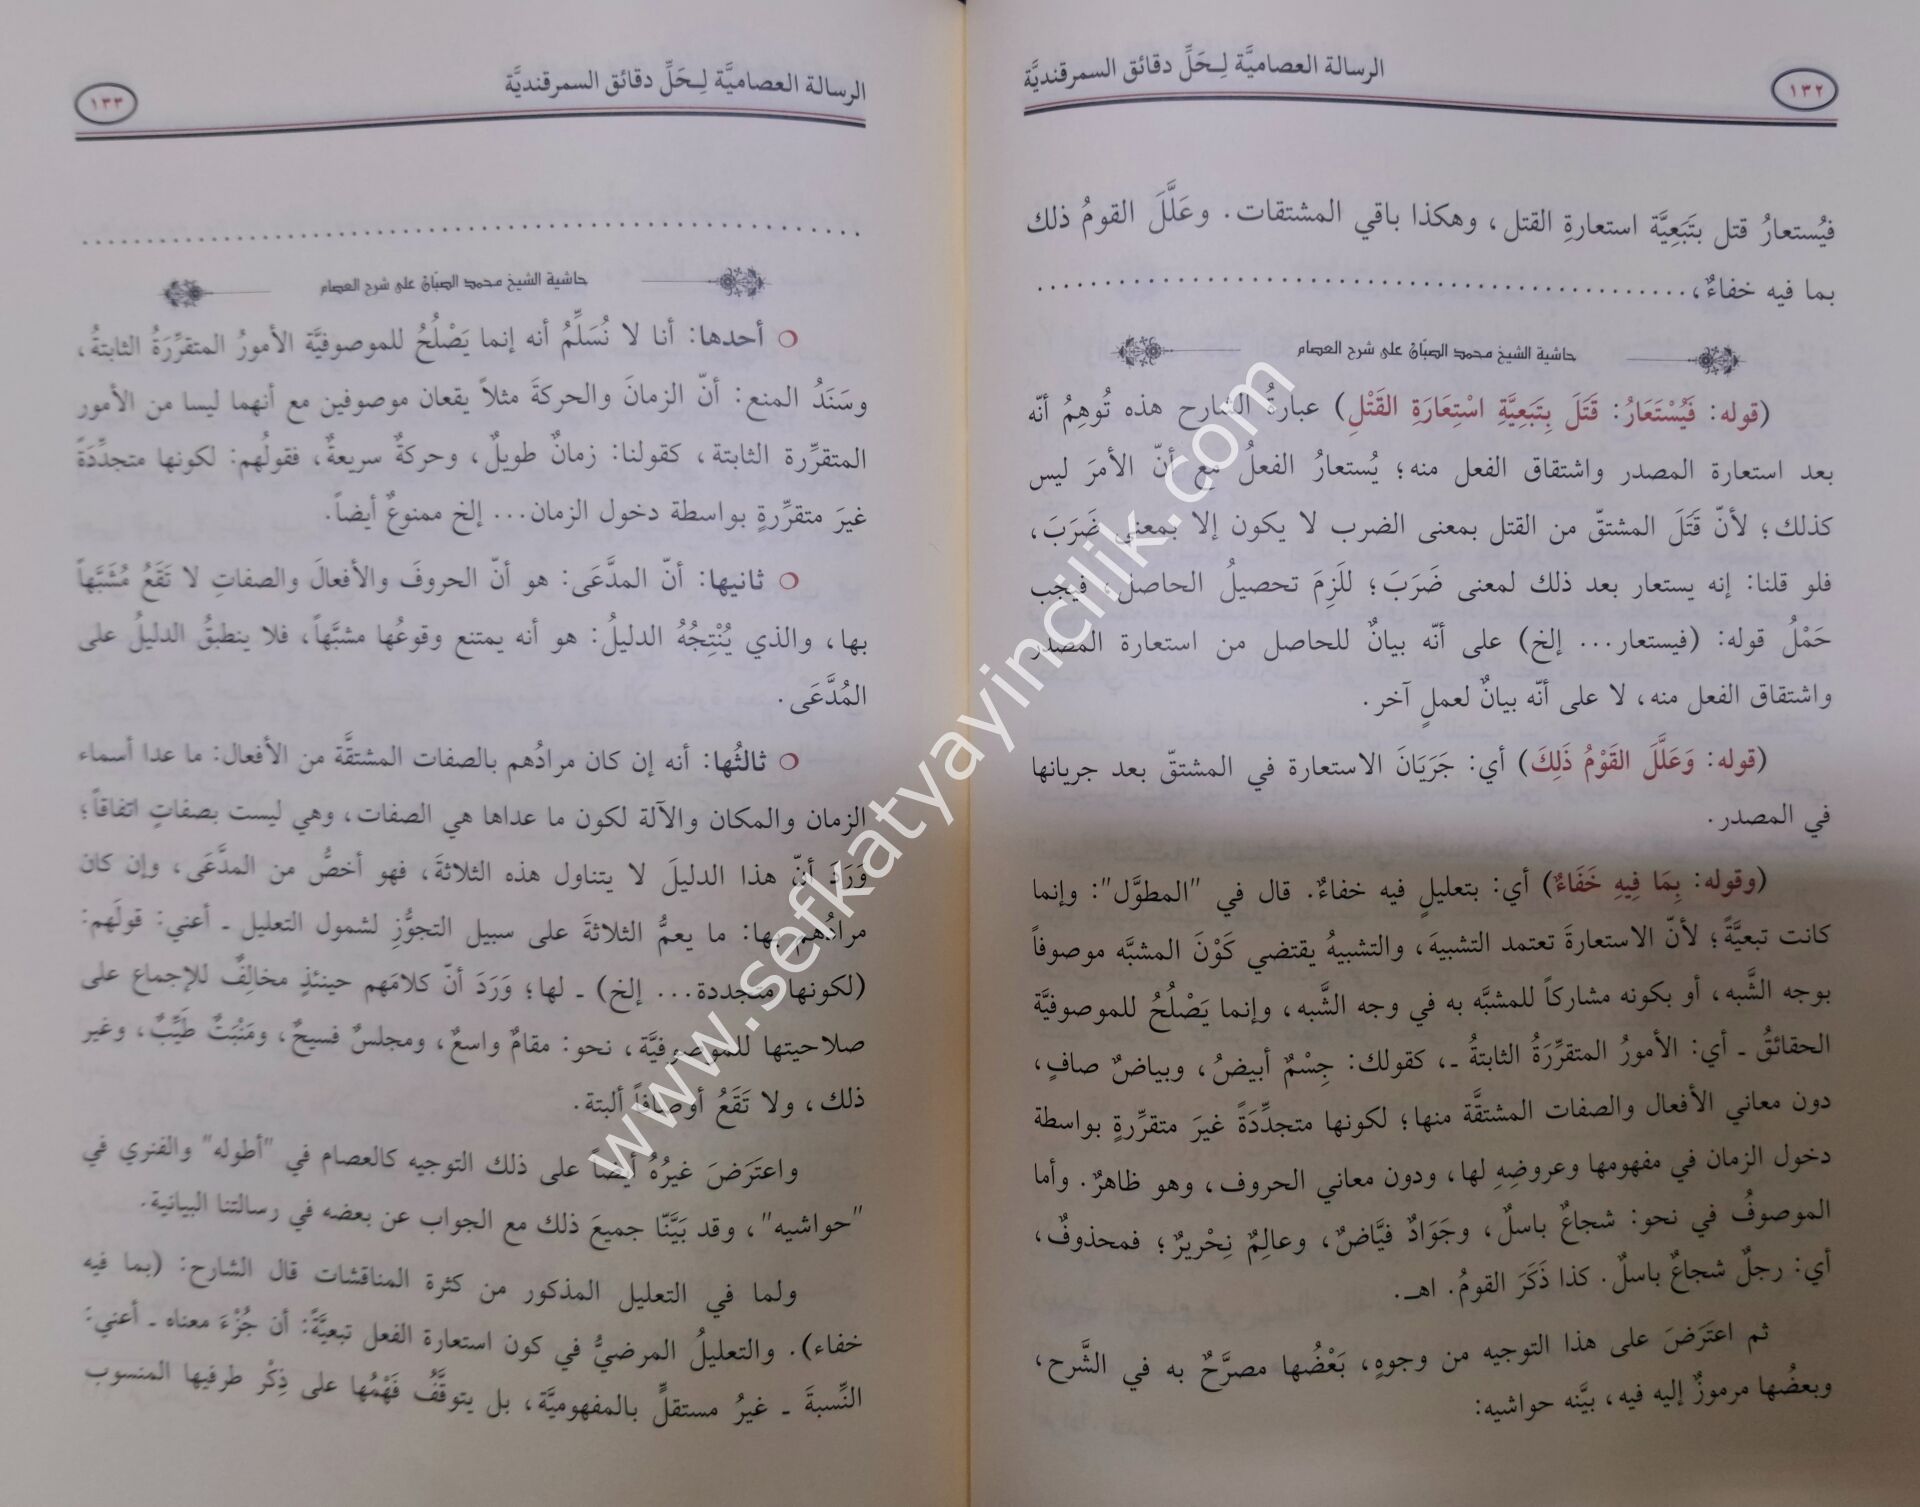 الرسالة العصاميَّة لِـحَلِّ دقائق السمرقنديَّة
١٣٢
فيُستعارُ قتل بتَبَعِيَّة استعارةِ القتل، وهكذا باقي المشتقات. وعَلَّلَ القومُ ذلك
بما فيه خفاءٌ،
حاشية الشيخ محمد الصبّان على شرح العصام
(قوله: فَيُسْتَعَارُ: قَتَلَ بِتَبَعِيَّةِ اسْتِعَارَةِ القَتْلِ) عبارةُ الشارح هذه تُوهِمُ أنّه
بعد استعارة المصدر واشتقاق الفعل منه؛ يُستعارُ الفعلُ مع أنّ الأمرَ ليس
كذلك؛ لأنّ قَتَلَ المشتقّ من القتل بمعنى الضرب لا يكون إلا بمعنى ضَرَبَ،
فلو قلنا: إنه يستعار بعد ذلك لمعنى ضَرَبَ؛ للَزِمَ تحصيلُ الحاصل، فيجب
حَمْلُ قوله: (فيستعار... إلخ) على أنّه بيانٌ للحاصل من استعارة المصدر
واشتقاق الفعل منه، لا على أنّه بيانٌ لعملٍ آخر.
(قوله: وَعَلَّلَ القَوْمُ ذَلِكَ) أي: جَرَيَانَ الاستعارة في المشتقّ بعد جريانها
في المصدر.
(وقوله: بِمَا فِيهِ خَفَاءٌ) أي: بتعليلٍ فيه خفاءٌ. قال في "المطوَّل": وإنما
كانت تبعيَّةً؛ لأنّ الاستعارةَ تعتمد التشبيهَ، والتشبيهُ يقتضي كَوْنَ المشبَّه موصوفاً
بوجه الشَّبه، أو بكونه مشاركاً للمشبَّه به في وجه الشَّبه، وإنما يَصْلُحُ للموصوفيَّة
الحقائقُ ـ أي: الأمورُ المتقرِّرَةُ الثابتةُ ـ، كقولك: جِسْمٌ أبيضُ، وبياضٌ صافٍ،
دون معاني الأفعال والصفات المشتقَّة منها؛ لكونها متجدِّدَةً غيرَ متقرِّرةٍ بواسطة
دخول الزمان في مفهومها وعروضِهِ لها، ودون معاني الحروف، وهو ظاهرٌ. وأما
الموصوفُ في نحو: شجاعٌ باسلٌ، وجَوَادٌ فيَّاضٌ، وعالِمٌ نِحْريرٌ؛ فمحذوفٌ،
أي: رجلٌ شجاعٌ باسلٌ. كذا ذَكَرَ القومُ. اهـ.
ثم اعتَرَضَ على هذا التوجيه من وجوهٍ، بَعْضُها مصرَّحٌ به في الشَّرح،
وبعضُها مرموزٌ إليه فيه، بيَّنه حواشيه:
الرسالة العصاميَّة لِـحَلِّ دقائق السمرقنديَّة
١٣٣
حاشية الشيخ محمد الصبّان على شرح العصام
أحدها: أنا لا نُسَلِّمُ أنه إنما يَصْلُحُ للموصوفيَّة الأمورُ المتقرِّرَةُ الثابتةُ،
وسَنَدُ المنع: أنّ الزمانَ والحركةَ مثلاً يقعان موصوفين مع أنهما ليسا من الأمور
المتقرِّرة الثابتة، كقولنا: زمانٌ طويلٌ، وحركةٌ سريعةٌ، فقولُهم: لكونها متجدِّدَةً
غيرَ متقرِّرةٍ بواسطة دخول الزمان... إلخ ممنوعٌ أيضاً.
ثانيها: أنّ المدَّعَى: هو أنّ الحروفَ والأفعالَ والصفاتِ لا تَقَعُ مُشَبَّهاً
بها، والذي يُنْتِجُهُ الدليلُ: هو أنه يمتنع وقوعُها مشبَّهاً، فلا ينطبقُ الدليلُ على
المُدَّعَى.
ثالثُها: أنه إن كان مرادُهم بالصفات المشتقَّة من الأفعال: ما عدا أسماء
الزمان والمكان والآلة لكون ما عداها هي الصفات، وهي ليست بصفاتٍ اتفاقاً؛
وَرَدَ أنّ هذا الدليلَ لا يتناول هذه الثلاثةَ، فهو أخصُّ من المدَّعَى، وإن كان
مرادُهم بها: ما يعمُّ الثلاثةَ على سبيل التجوُّزِ لشمول التعليل ـ أعني: قولَهم:
(لكونها متجددة... إلخ) ـ لها؛ وَرَدَ أنّ كلامَهم حينئذٍ مخالِفٌ للإجماع على
صلاحيتها للموصوفيَّة، نحو: مقامٌ واسعٌ، ومجلسٌ فسيحٌ، ومَنْبَتٌ طَيِّبٌ، وغير
ذلك، ولا تَقَعُ أوصافاً ألبتة.
واعتَرَضَ غيرُهُ أيضاً على ذلك التوجيه كالعصام في "أطوله" والفنري في
"حواشيه"، وقد بَيَّنّا جميعَ ذلك مع الجواب عن بعضه في رسالتنا البيانية.
ولما في التعليل المذكور من كثرة المناقشات قال الشارح: (بما فيه
خفاء). والتعليلُ المرضيُّ في كون استعارة الفعل تبعيَّةً: أن جُزْءَ معناه ـ أعني:
النِّسبةَ ـ غيرُ مستقلٍّ بالمفهوميَّة، بل يتوقَّفُ فَهْمُها على ذِكْر طرفيها المنسوب
www.sefkatyayincilik.com